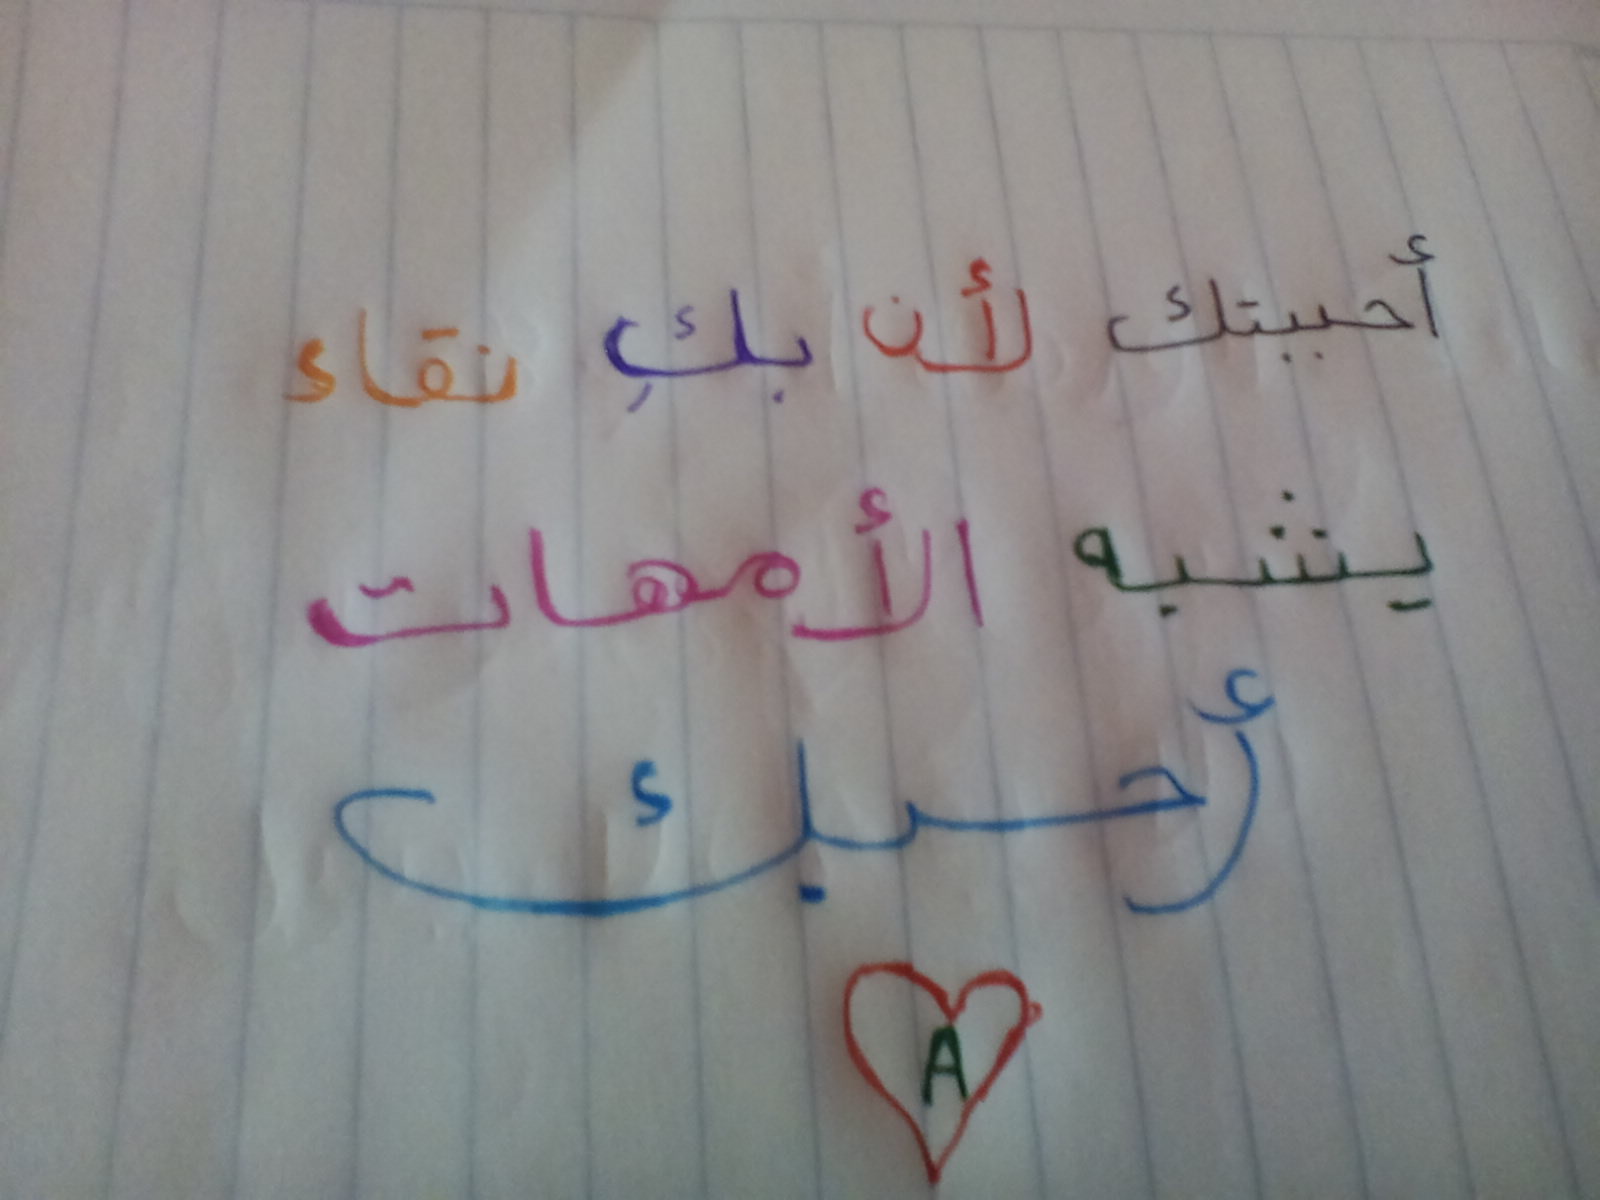 أحببتك لأن بكِ نقاء
يشبه الأمهات
أحبك
A